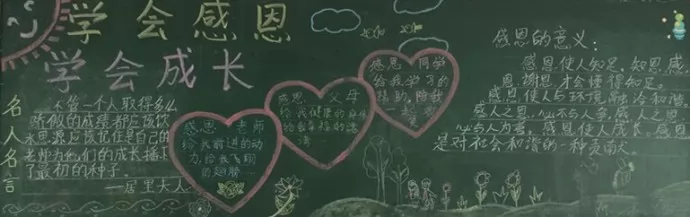 学会感恩
学会成长
名人名言
不管一个人取得多么
骄傲的成绩都应该饮
水思源应该记住是自己的
老师为他们的成长播
了最初的种子。
——居里夫人
感恩 老师
给我前进的动
力,给我飞翔
的翅膀……
感恩 父母
给我健康的
感恩 同学
给我学习的
帮助,陪我
感恩的意义:
感恩使人知足,知恩感
恩谢恩才会懂得知足。
感恩使人与环境融洽和谐。
感人之恩,
感恩使人成长,感恩
是对社会和谐的一种贡献